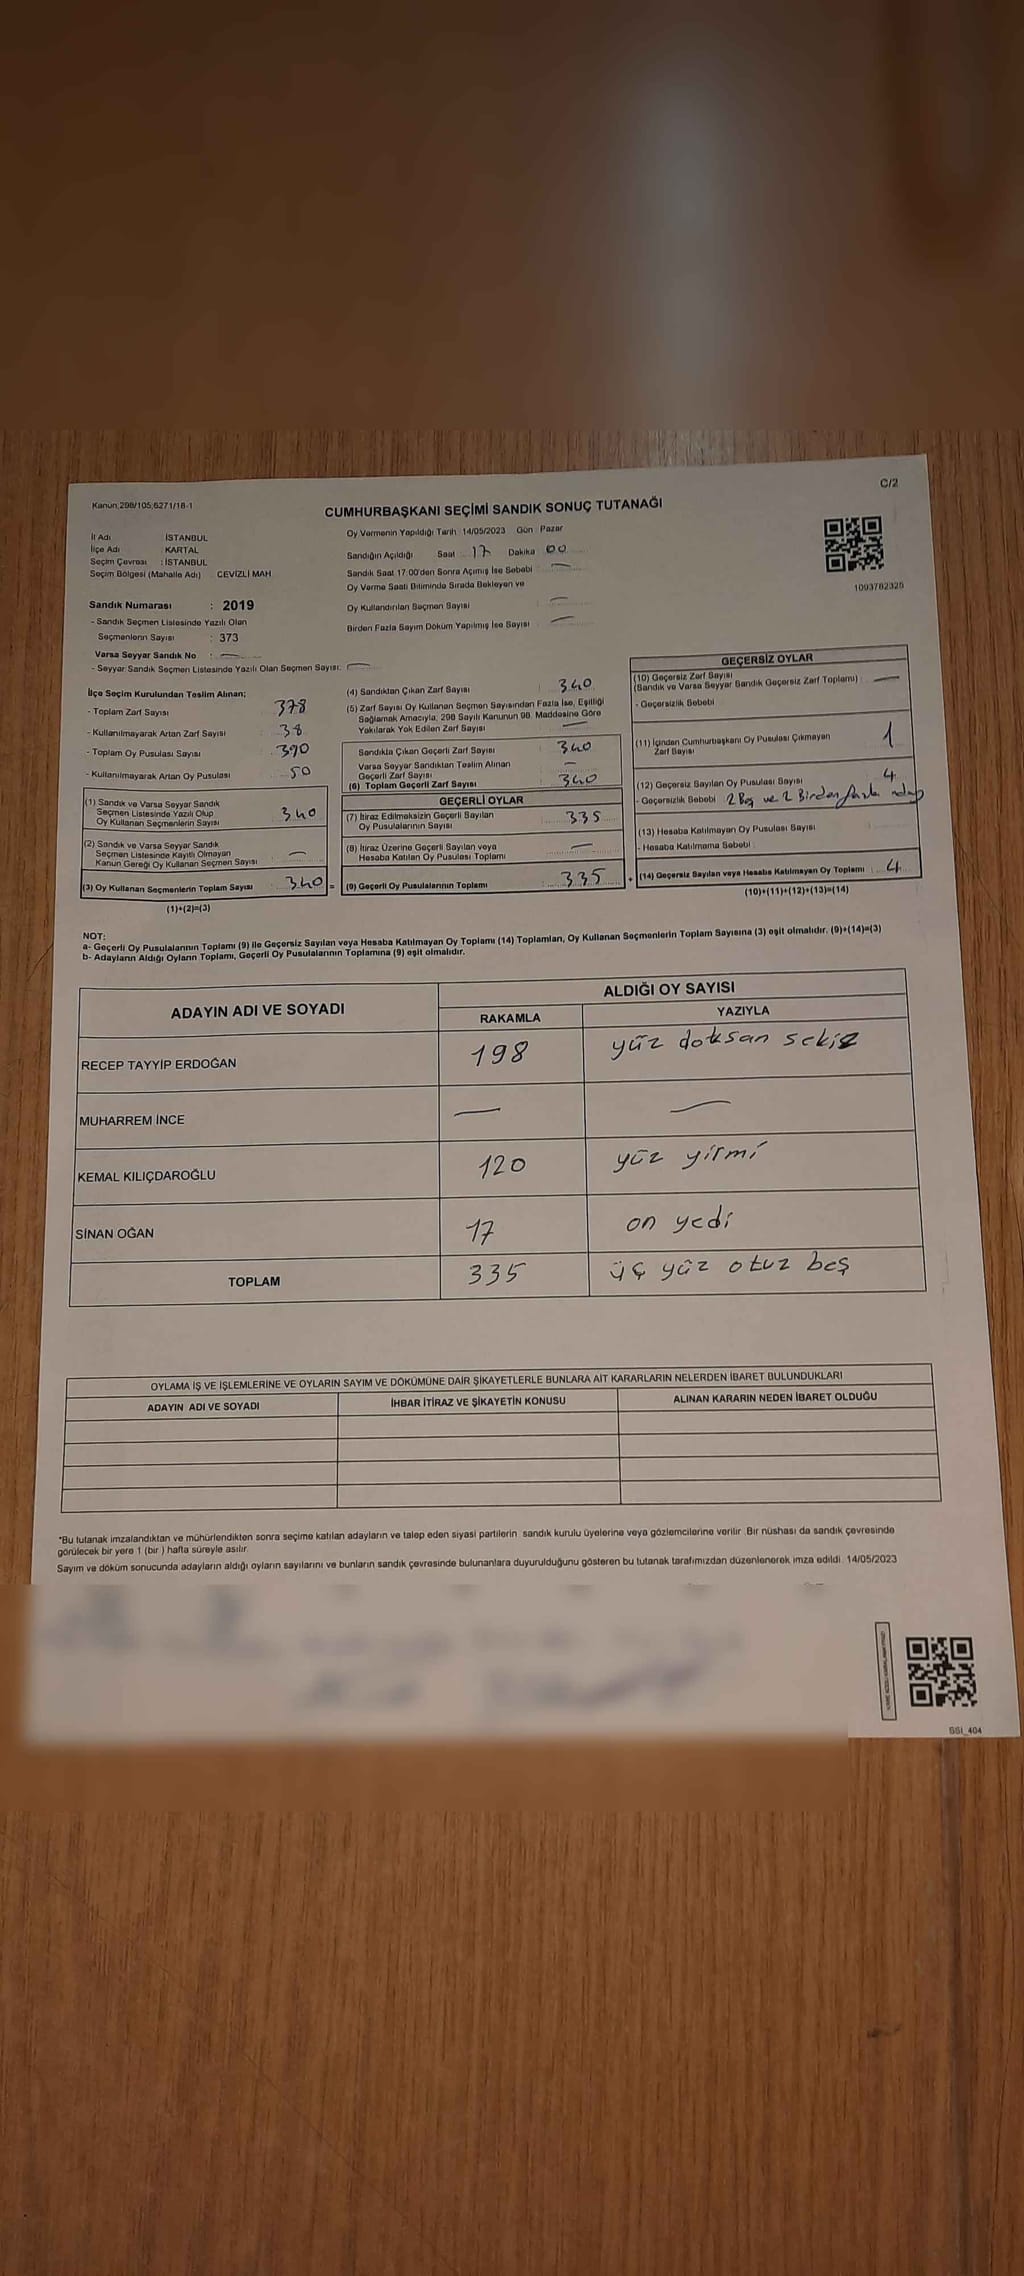 Kanun:298/105;6271/18-1
C/2
CUMHURBAŞKANI SEÇİMİ SANDIK SONUÇ TUTANAĞI
İl Adı İSTANBUL
İlçe Adı : KARTAL
Seçim Çevresi : İSTANBUL
Seçim Bölgesi (Mahalle Adı) CEVİZLİ MAH
Oy Vermenin Yapıldığı Tarih 14/05/2023 Gün Pazar
Sandığın Açıldığı Saat 17 Dakika 00
Sandık Saat 17:00'den Sonra Açımış İse Sebebi : —
Oy Verme Saati Bitiminde Sırada Bekleyen ve
Oy Kullandırılan Seçmen Sayısı : —
Birden Fazla Sayım Döküm Yapılmış İse Sayısı : —
1093782325
Sandık Numarası : 2019
- Sandık Seçmen Listesinde Yazılı Olan
Seçmenlerin Sayısı : 373
Varsa Seyyar Sandık No : —
- Seyyar Sandık Seçmen Listesinde Yazılı Olan Seçmen Sayısı: —
İlçe Seçim Kurulundan Teslim Alınan;
- Toplam Zarf Sayısı : 378
- Kullanılmayarak Artan Zarf Sayısı : 38
- Toplam Oy Pusulası Sayısı : 390
- Kullanılmayarak Artan Oy Pusulası : 50
(1) Sandık ve Varsa Seyyar Sandık
Seçmen Listesinde Yazılı Olup
Oy Kullanan Seçmenlerin Sayısı : 340
(2) Sandık ve Varsa Seyyar Sandık
Seçmen Listesinde Kayıtlı Olmayan
Kanun Gereği Oy Kullanan Seçmen Sayısı : —
(3) Oy Kullanan Seçmenlerin Toplam Sayısı : 340 =
(1)+(2)=(3)
(4) Sandıktan Çıkan Zarf Sayısı : 340
(5) Zarf Sayısı Oy Kullanan Seçmen Sayısından Fazla İse, Eşitliği
Sağlamak Amacıyla, 298 Sayılı Kanunun 98. Maddesine Göre
Yakılarak Yok Edilen Zarf Sayısı : —
Sandıkla Çıkan Geçerli Zarf Sayısı : 340
Varsa Seyyar Sandıktan Teslim Alınan
Geçerli Zarf Sayısı : —
(6) Toplam Geçerli Zarf Sayısı : 340
GEÇERLİ OYLAR
(7) İtiraz Edilmeksizin Geçerli Sayılan
Oy Pusulalarının Sayısı : 335
(8) İtiraz Üzerine Geçerli Sayılan veya
Hesaba Katılan Oy Pusulası Toplamı : —
(9) Geçerli Oy Pusulalarının Toplamı : 335 +
GEÇERSİZ OYLAR
(10) Geçersiz Zarf Sayısı
(Sandık ve Varsa Seyyar Sandık Geçersiz Zarf Toplamı) : —
- Geçersizlik Sebebi
(11) İçinden Cumhurbaşkanı Oy Pusulası Çıkmayan
Zarf Sayısı 1
(12) Geçersiz Sayılan Oy Pusulası Sayısı 4
- Geçersizlik Sebebi 2 Boş ve 2 Birden fazla aday
(13) Hesaba Katılmayan Oy Pusulası Sayısı
- Hesaba Katılmama Sebebi
(14) Geçersiz Sayılan veya Hesaba Katılmayan Oy Toplamı : 4
(10)+(11)+(12)+(13)=(14)
NOT:
a- Geçerli Oy Pusulalarının Toplamı (9) ile Geçersiz Sayılan veya Hesaba Katılmayan Oy Toplamı (14) Toplamları, Oy Kullanan Seçmenlerin Toplam Sayısına (3) eşit olmalıdır. (9)+(14)=(3)
b- Adayların Aldığı Oyların Toplamı, Geçerli Oy Pusulalarının Toplamına (9) eşit olmalıdır.
ADAYIN ADI VE SOYADI ALDIĞI OY SAYISI
RAKAMLA YAZIYLA
RECEP TAYYİP ERDOĞAN 198 yüz doksan sekiz
MUHARREM İNCE — —
KEMAL KILIÇDAROĞLU 120 yüz yirmi
SİNAN OĞAN 17 on yedi
TOPLAM 335 üç yüz otuz beş
OYLAMA İŞ VE İŞLEMLERİNE VE OYLARIN SAYIM VE DÖKÜMÜNE DAİR ŞİKAYETLERLE BUNLARA AİT KARARLARIN NELERDEN İBARET BULUNDUKLARI
ADAYIN ADI VE SOYADI İHBAR İTİRAZ VE ŞİKAYETİN KONUSU ALINAN KARARIN NEDEN İBARET OLDUĞU
*Bu tutanak imzalandıktan ve mühürlendikten sonra seçime katılan adayların ve talep eden siyasi partilerin sandık kurulu üyelerine veya gözlemcilerine verilir. Bir nüshası da sandık çevresinde
görülecek bir yere 1 (bir ) hafta süreyle asılır.
Sayım ve döküm sonucunda adayların aldığı oyların sayılarını ve bunların sandık çevresinde bulunanlara duyurulduğunu gösteren bu tutanak tarafımızdan düzenlenerek imza edildi. 14/05/2023
SSI_404